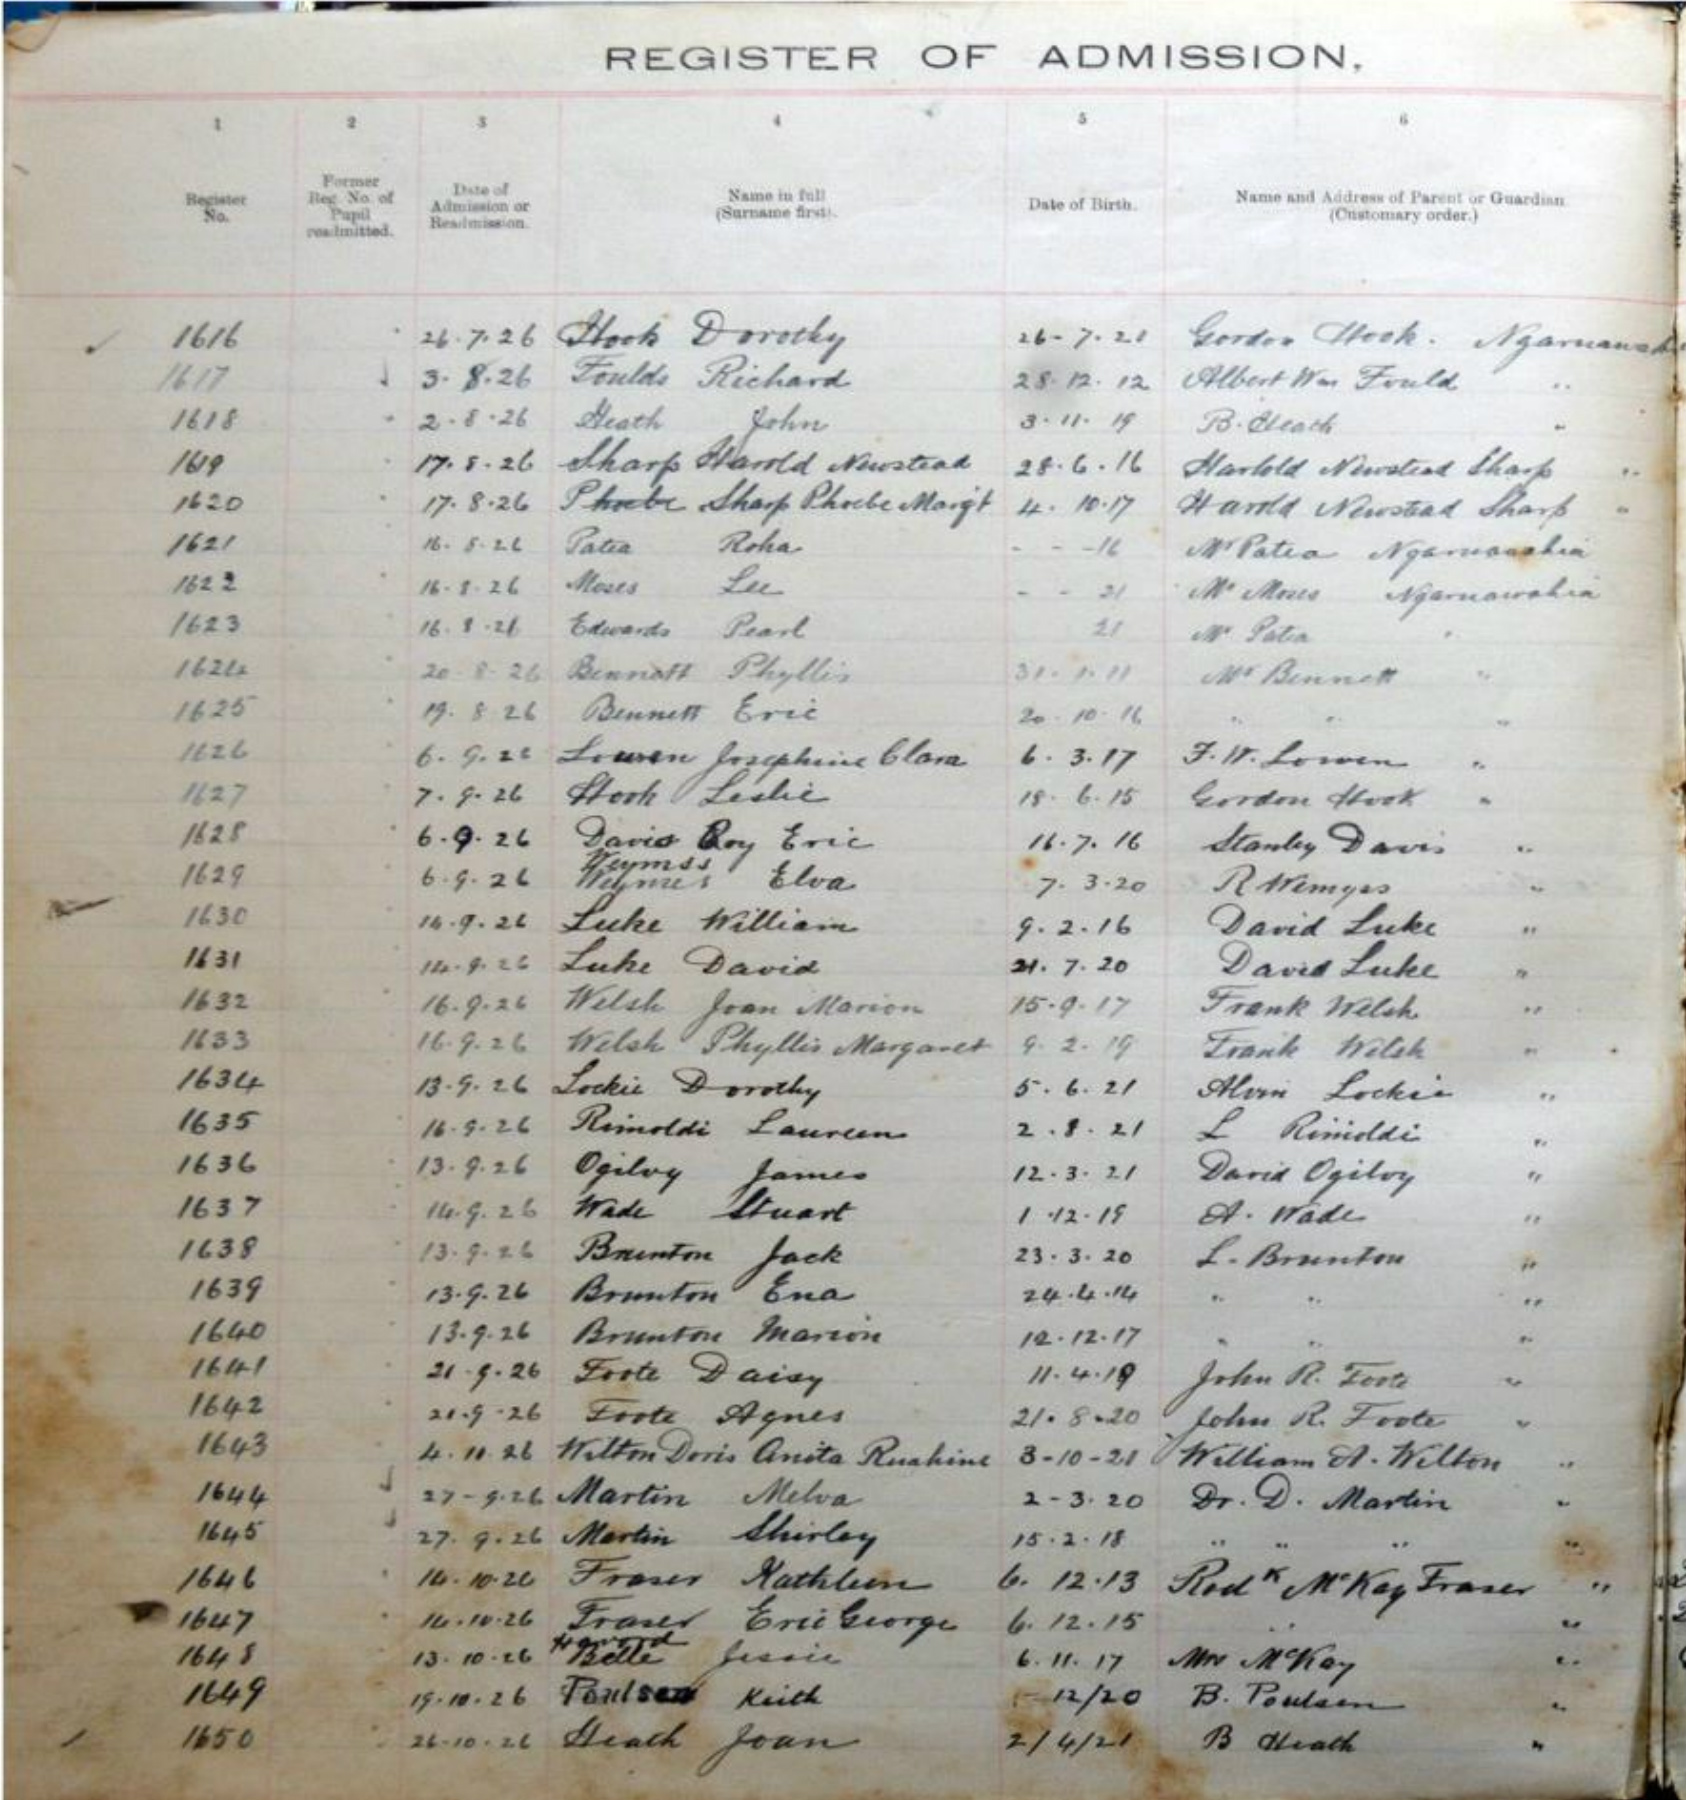 REGISTER OF ADMISSION.
1 2 3 4 5 6
Register No. Former Reg. No. of Pupil readmitted. Date of Admission or Readmission. Name in full (Surname first). Date of Birth. Name and Address of Parent or Guardian (Customary order.)
1616 26.7.26 Hook Dorothy 26-7.21 Gordon Hook. Ngaruawahia
1617 3.8.26 Foulds Richard 28.12.12 Albert Wm Fould "
1618 2.8.26 Heath John 3.11.19 B. Heath "
1619 17.8.26 Sharp Harold Newstead 28.6.16 Harlold Newstead Sharp "
1620 17.8.26 Phoebe Sharp Phoebe Margt 4.10.17 Harold Newstead Sharp "
1621 16.8.26 Patea Roha - - -16 Mr Patea Ngaruawahia
1622 16.8.26 Moses Lee - - 21 Mr Moses Ngaruawahia
1623 16.8.26 Edwards Pearl 21 Mr Patea "
1624 20.8.26 Bennett Phyllis 31.1.11 Mr Bennett "
1625 19.8.26 Bennett Eric 20.10.16 " " "
1626 6.9.26 Lowen Josephine Clara 6.3.17 F. W. Lowen "
1627 7.9.26 Hook Leslie 18.6.15 Gordon Hook "
1628 6.9.26 Davis Roy Eric 16.7.16 Stanley Davis "
Weymss
1629 6.9.26 Weymes Elva 7.3.20 R Wemyss "
1630 14.9.26 Luke William 9.2.16 David Luke "
1631 14.9.26 Luke David 21.7.20 David Luke "
1632 16.9.26 Welsh Joan Marion 15.9.17 Frank Welsh "
1633 16.9.26 Welsh Phyllis Margaret 9.2.19 Frank Welsh "
1634 13.9.26 Lockie Dorothy 5.6.21 Alvin Lockie "
1635 16.9.26 Rimoldi Laureen 2.8.21 L Rimoldi "
1636 13.9.26 Ogilvy James 12.3.21 David Ogilvy "
1637 14.9.26 Wade Stuart 1.12.19 A. Wade "
1638 13.9.26 Brunton Jack 23.3.20 L. Brunton "
1639 13.9.26 Brunton Ena 24.4.14 " " "
1640 13.9.26 Brunton Marion 12.12.17 " " "
1641 21.9.26 Foote Daisy 11.4.19 John R. Foote "
1642 21.9.26 Foote Agnes 21.8.20 John R. Foote "
1643 4.10.26 Wilton Doris Anita Ruahine 3-10-21 William A. Wilton "
1644 27-9.26 Martin Melva 2-3.20 Dr. D. Martin "
1645 27.9.26 Martin Shirley 15.2.18 " " " "
1646 14.10.26 Fraser Kathleen 6.12.13 Rodk McKay Fraser "
1647 14.10.26 Fraser Eric George 6.12.15 " "
1648 13.10.26 Belle Jessie 6.11.17 Mrs McKay "
1649 19.10.26 Poulsen Keith 12/20 B. Poulsen "
1650 26.10.26 Heath Joan 2/4/21 B Heath "